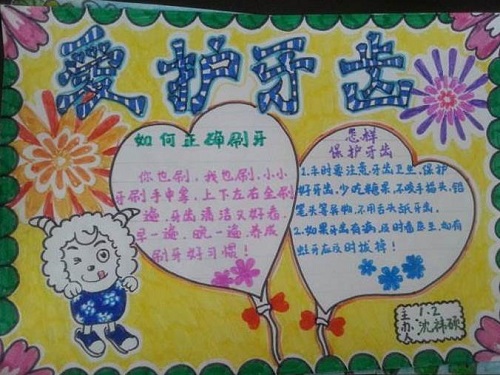 爱护牙齿
如何正确刷牙
你也刷,我也刷,小小
牙刷手中拿,上下左右全刷
遍,牙齿清洁又好看,
早一遍,晚一遍,养成
刷牙好习惯!
怎样
保护牙齿
1.平时要注意牙齿卫生,保护
好牙齿,少吃糖果,不咬手指头、铅
笔头等异物,不用舌头舐牙齿。
2.如果牙齿有病,及时看医生,如有
蛀牙应及时拔掉!
主办人
1.2
沈祎硕